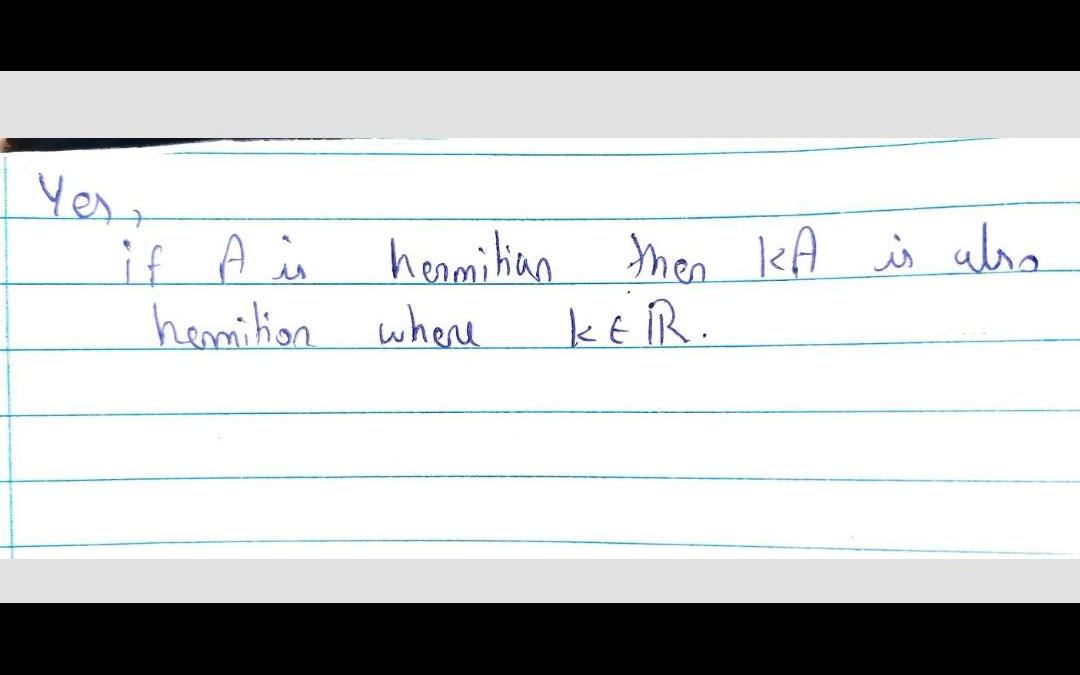 Yes,
if A is hermitian then kA is also
hermition where k ∈ ℝ.